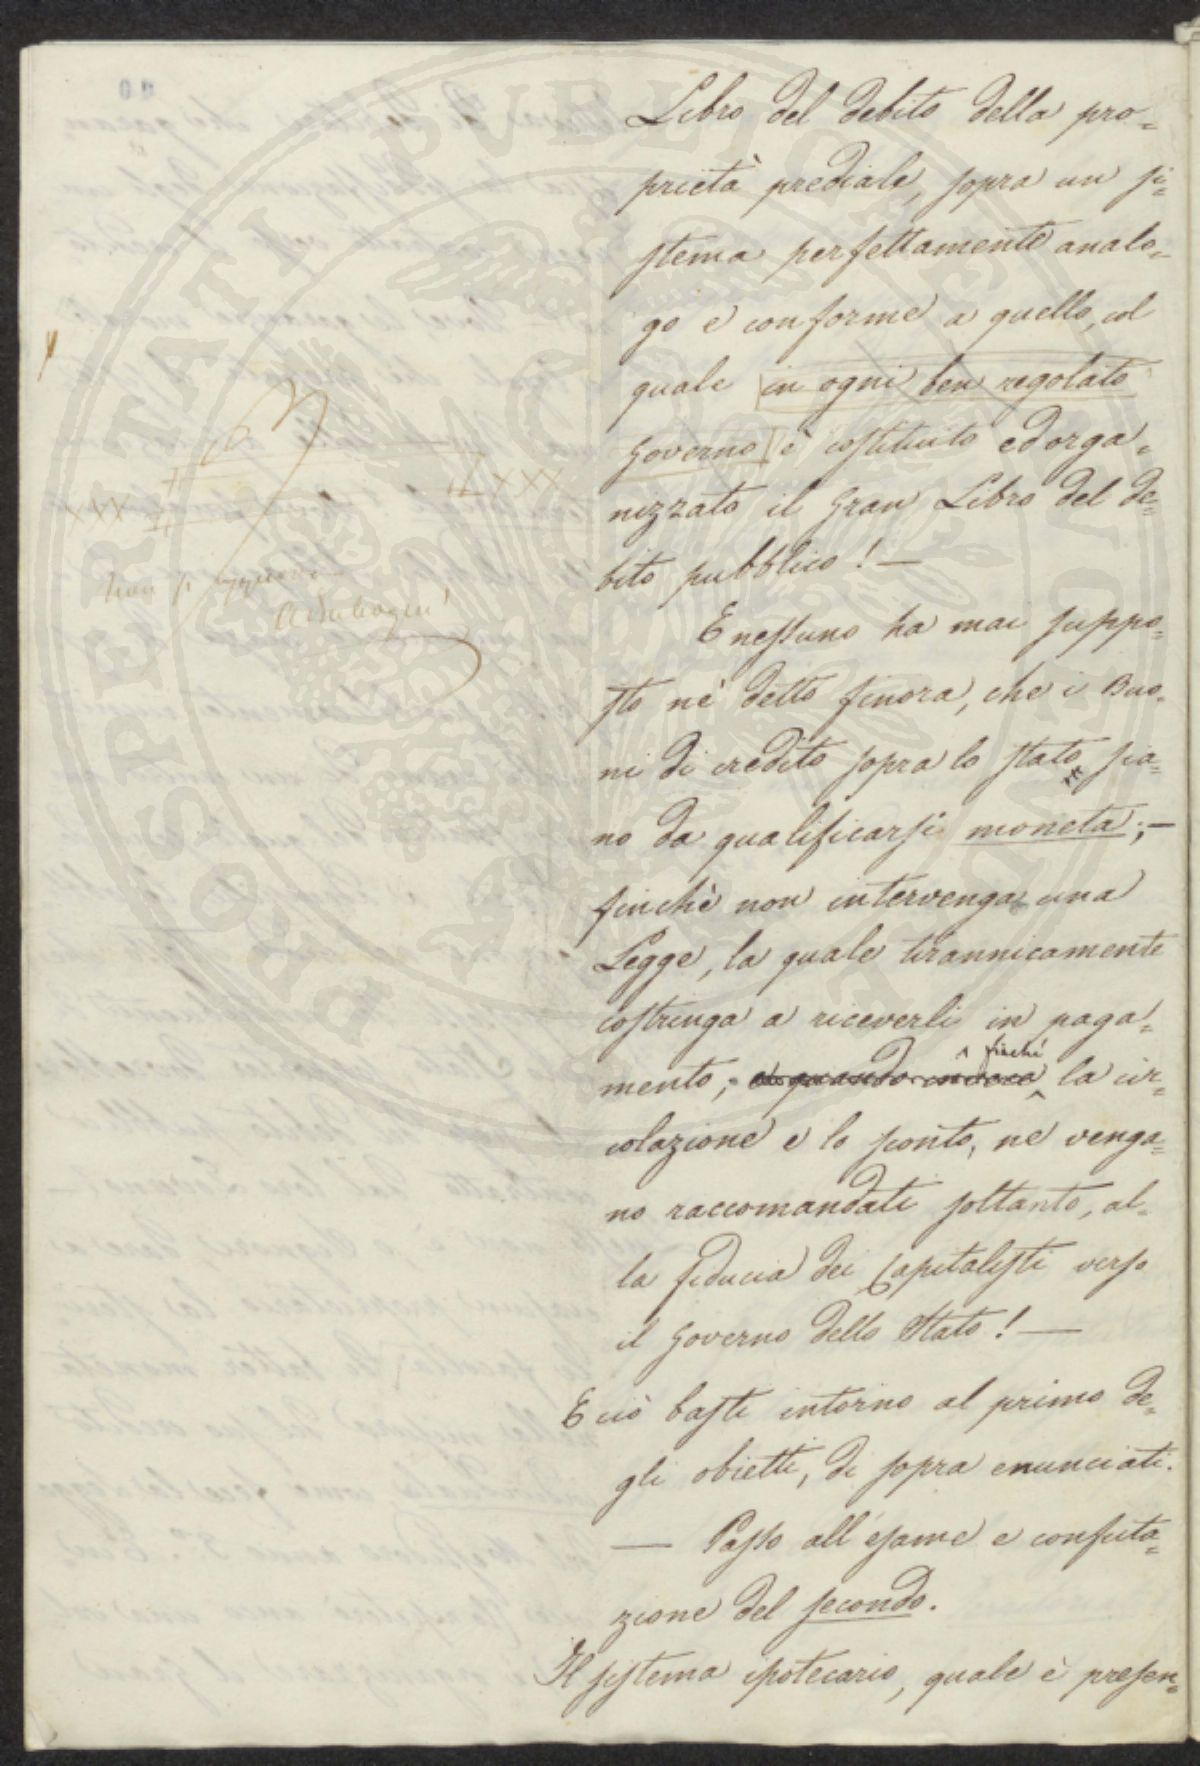 Libro del debito della pro=
prietà prediale, sopra un si=
stema perfettamente analo=
go e conforme a quello, col
quale in ogni ben regolato
Governo è costituito ed orga=
nizzato il Gran Libro del de=
bito pubblico! —
E nessuno ha mai suppo=
sto nè detto finora, che i Buo=
ni di credito sopra lo stato sia=
no da qualificarsi moneta; —
finchè non intervenga una
Legge, la quale tirannicamente
costringa a riceverli in paga=
mento; finchè la cir=
colazione e lo sconto, ne venga=
no raccomandati soltanto, al=
la fiducia dei Capitalisti verso
il Governo dello Stato! —
E ciò basti intorno al primo de=
gli obietti, di sopra enunciati.
— Passo all'esame e confuta=
zione del secondo.
Il sistema ipotecario, quale è presen=
non si
PROSPERITATI PUBLICAE